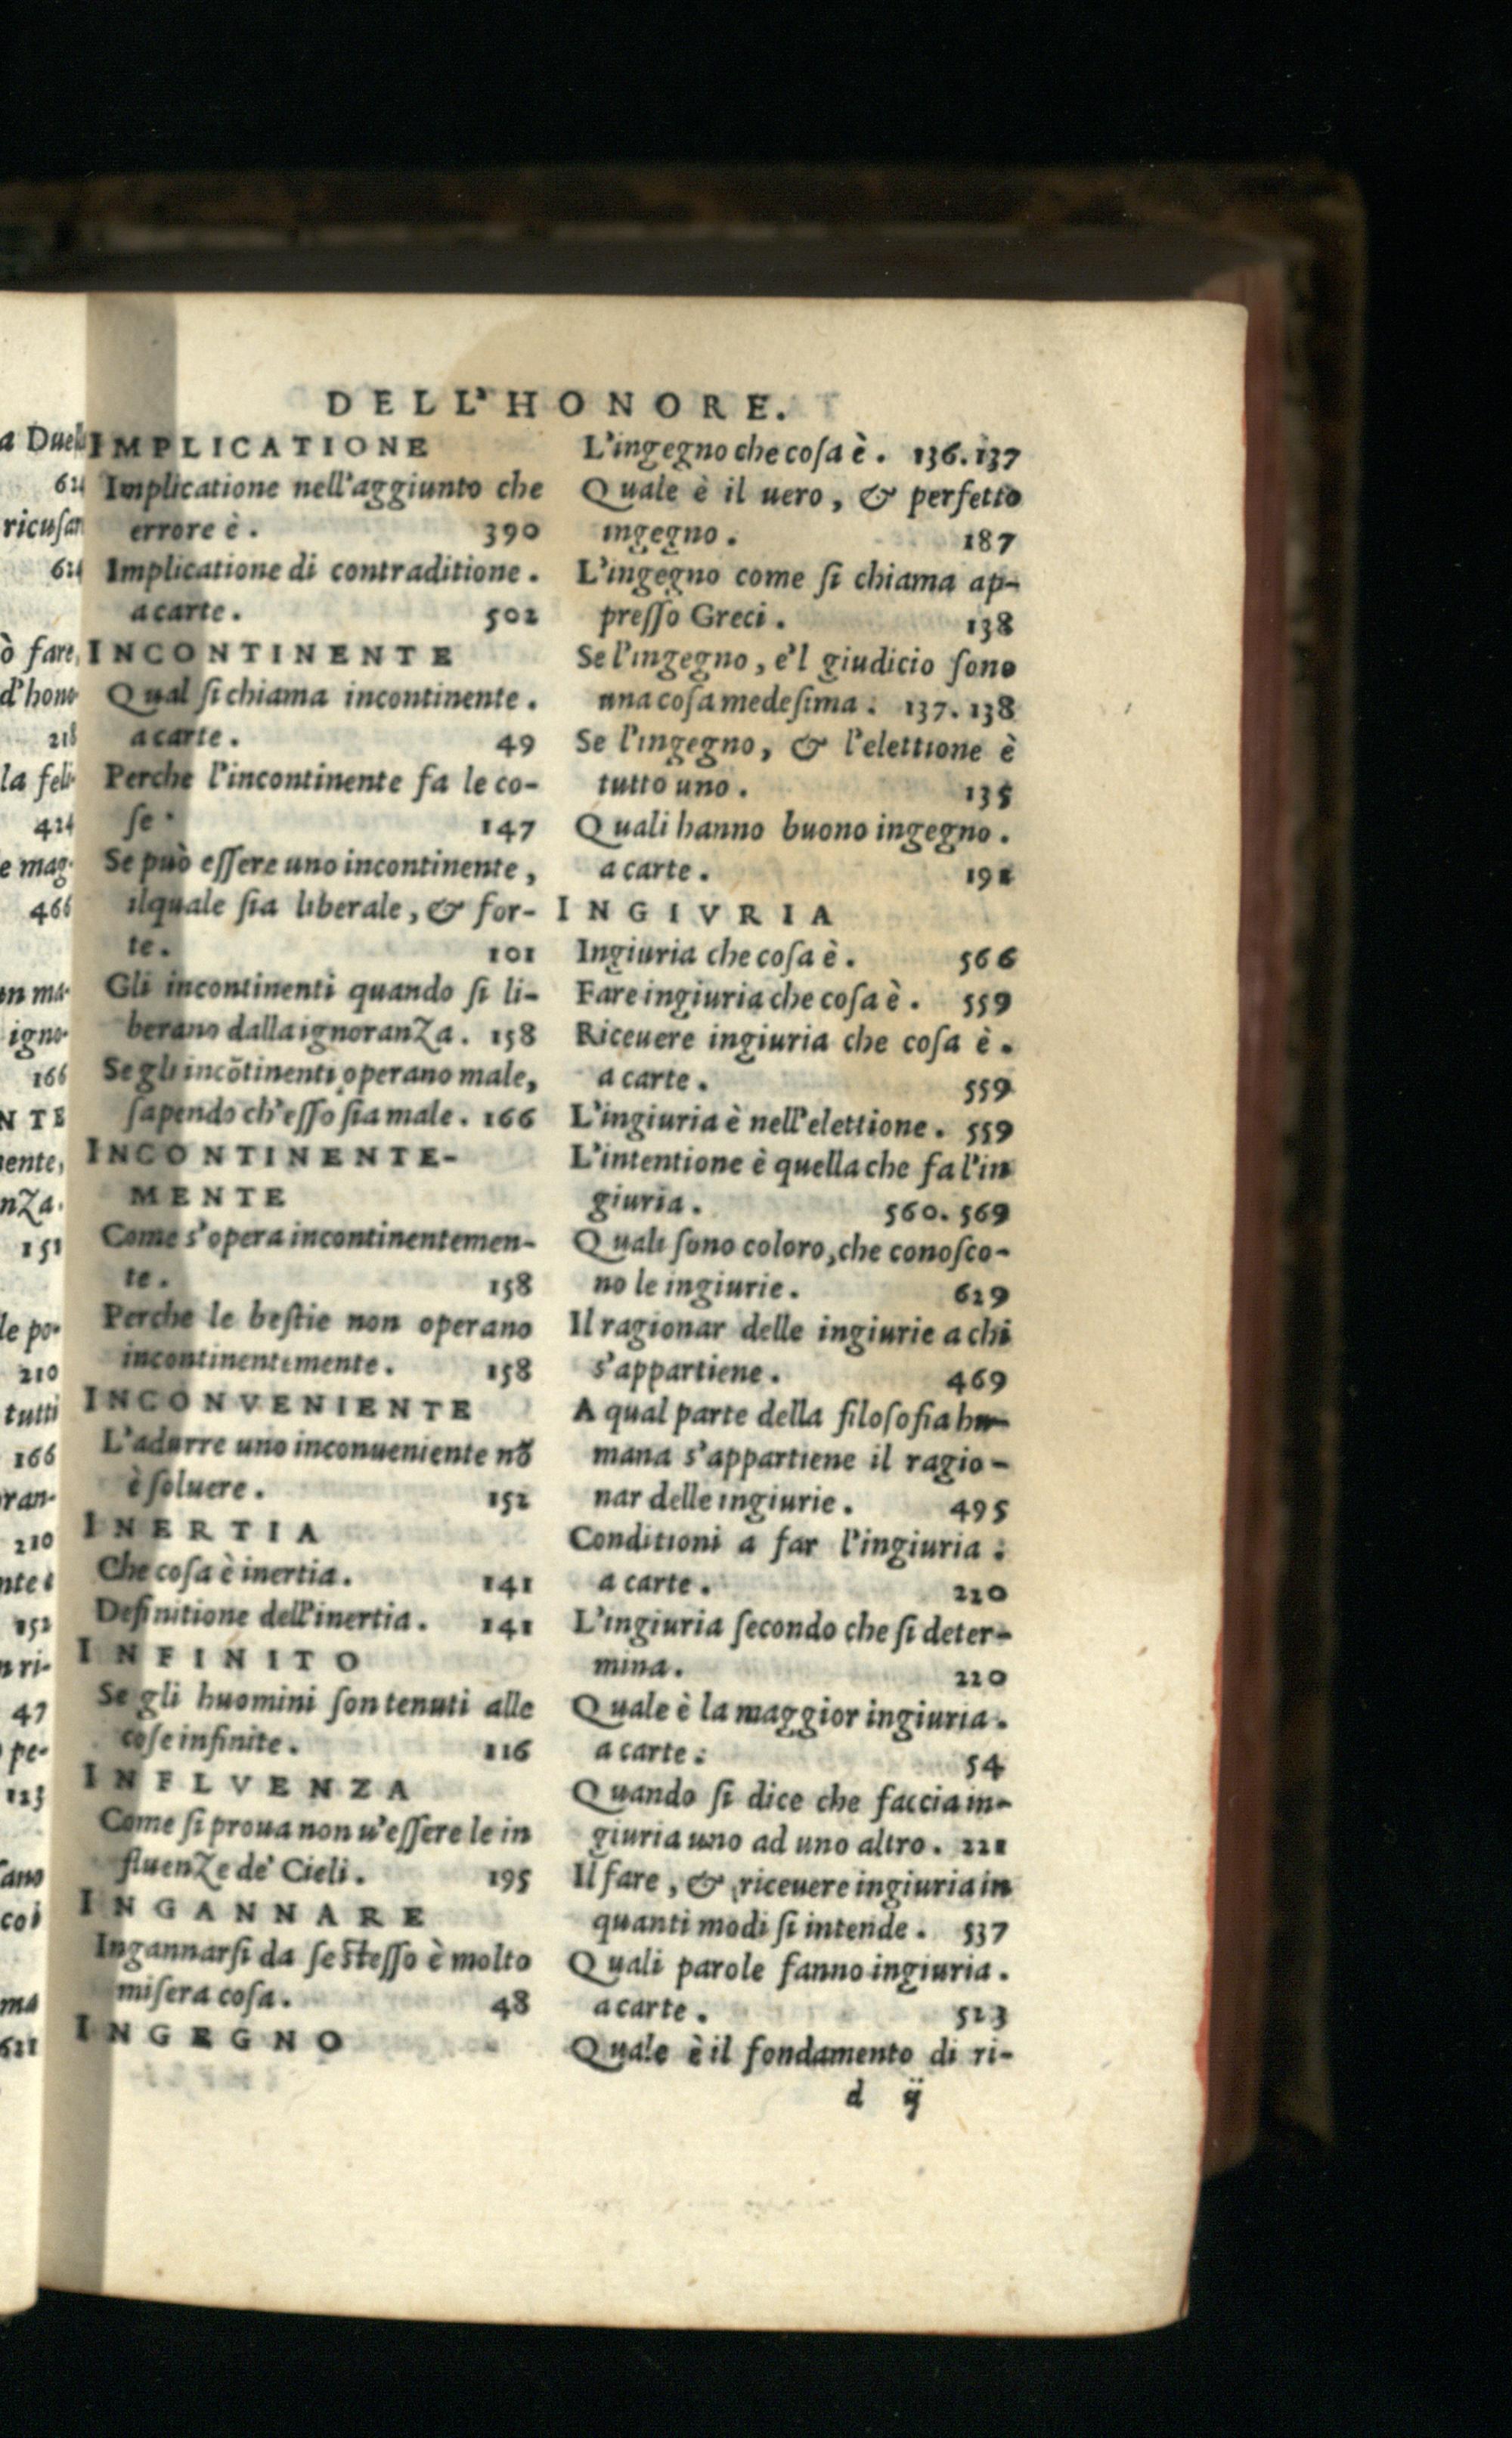 DELL'HONORE.
IMPLICATIONE
Implicatione nell'aggiunto che
errore è. 390
Implicatione di contraditione.
a carte. 502
INCONTINENTE
Qual ſi chiama incontinente.
a carte. 49
Perche l'incontinente fa le co-
ſe. 147
Se può eſſere uno incontinente,
ilquale ſia liberale, & for-
te. 101
Gli incontinenti quando ſi li-
berano dalla ignoranZa. 158
Se gli incõtinenti operano male,
ſapendo ch'eſſo ſia male. 166
INCONTINENTE-
MENTE
Come s'opera incontinentemen-
te. 158
Perche le beſtie non operano
incontinentemente. 158
INCONVENIENTE
L'adurre uno inconueniente nõ
è ſoluere. 152
INERTIA
Che coſa è inertia. 141
Definitione dell'inertia. 141
INFINITO
Se gli huomini ſon tenuti alle
coſe infinite. 116
INFLVENZA
Come ſi proua non u'eſſere le in
fluenZe de' Cieli. 195
INGANNARE
Ingannarſi da ſe ſteſſo è molto
miſera coſa. 48
INGEGNO
L'ingegno che coſa è. 136. 137
Quale è il uero, & perfetto
ingegno. 187
L'ingegno come ſi chiama ap-
preſſo Greci. 138
Se l'ingegno, e'l giudicio ſono
una coſa medeſima. 137. 138
Se l'ingegno, & l'elettione è
tutto uno. 135
Quali hanno buono ingegno.
a carte. 191
INGIVRIA
Ingiuria che coſa è. 566
Fare ingiuria che coſa è. 559
Riceuere ingiuria che coſa è.
a carte. 559
L'ingiuria è nell'elettione. 559
L'intentione è quella che fa l'in
giuria. 560. 569
Quali ſono coloro, che conoſco-
no le ingiurie. 629
Il ragionar delle ingiurie a chi
s'appartiene. 469
A qual parte della filoſofia hu-
mana s'appartiene il ragio-
nar delle ingiurie. 495
Conditioni a far l'ingiuria.
a carte. 220
L'ingiuria ſecondo che ſi deter-
mina. 220
Quale è la maggior ingiuria.
a carte. 54
Quando ſi dice che faccia in-
giuria uno ad uno altro. 221
Il fare, & riceuere ingiuria in
quanti modi ſi intende. 537
Quali parole fanno ingiuria.
a carte. 523
Quale è il fondamento di ri-
d ij